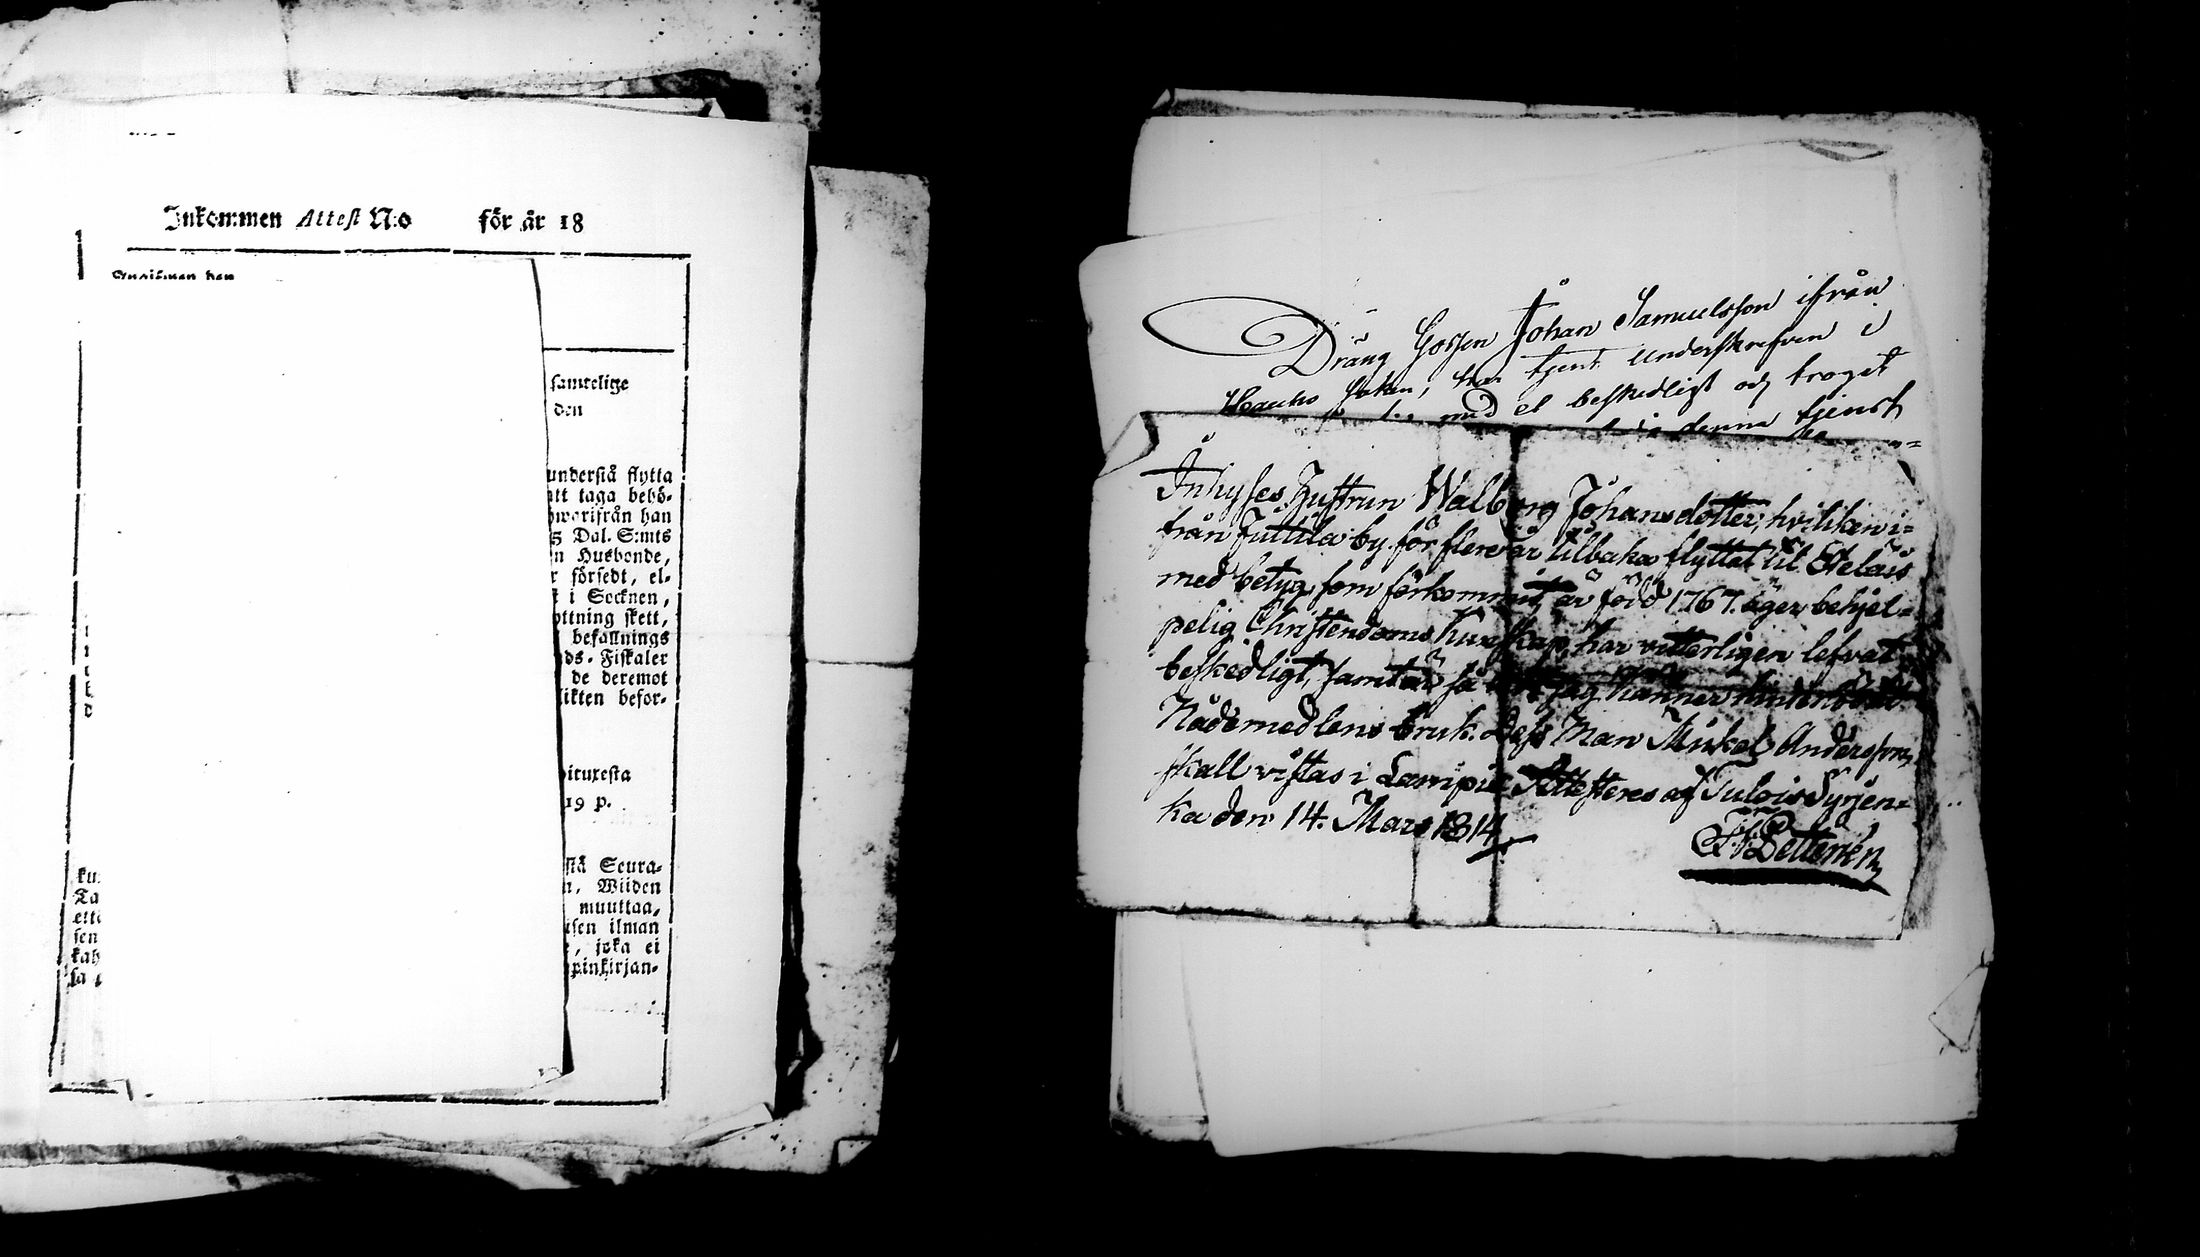 Inkommen Attest N:o för år 18
samtelige
den
understå flytta
att taga behö-
hworifrån han
5 Dal. S:mts
n Husbonde,
r försedt, el-
t i Socknen,
ottning skett,
befallnings
ds-Fiskaler
de deremot
likten befor-
19 p.
stä Seura-
n, Wiiden
muuttaa,
isen ilman
, joka ei
pinkirjan-
ku
Ta
ette
sen
kah
sa
Dräng Gossen Johan Samuelsson ifrån
Hauho Sokn, har tjent underskrefven i
med et beskedligt och troget
denna tjenst
Inhyses Hustrun Walborg Johansdotter, hvilken i-
från Juttila by för flere år tilbaka flyttat til Etelais
med betyg som förkommit, är född 1767. äger behjel-
pelig Christendoms kunskap, har vitterligen lefvat
beskedligt, samt är så vitt jag känner hinderlös til
Nådemedlens bruk. Dess Man Mickel Andersson
skall vistas i Lampis. Attesteras af Tulois Syrjen-
ka den 14. Mars 1814